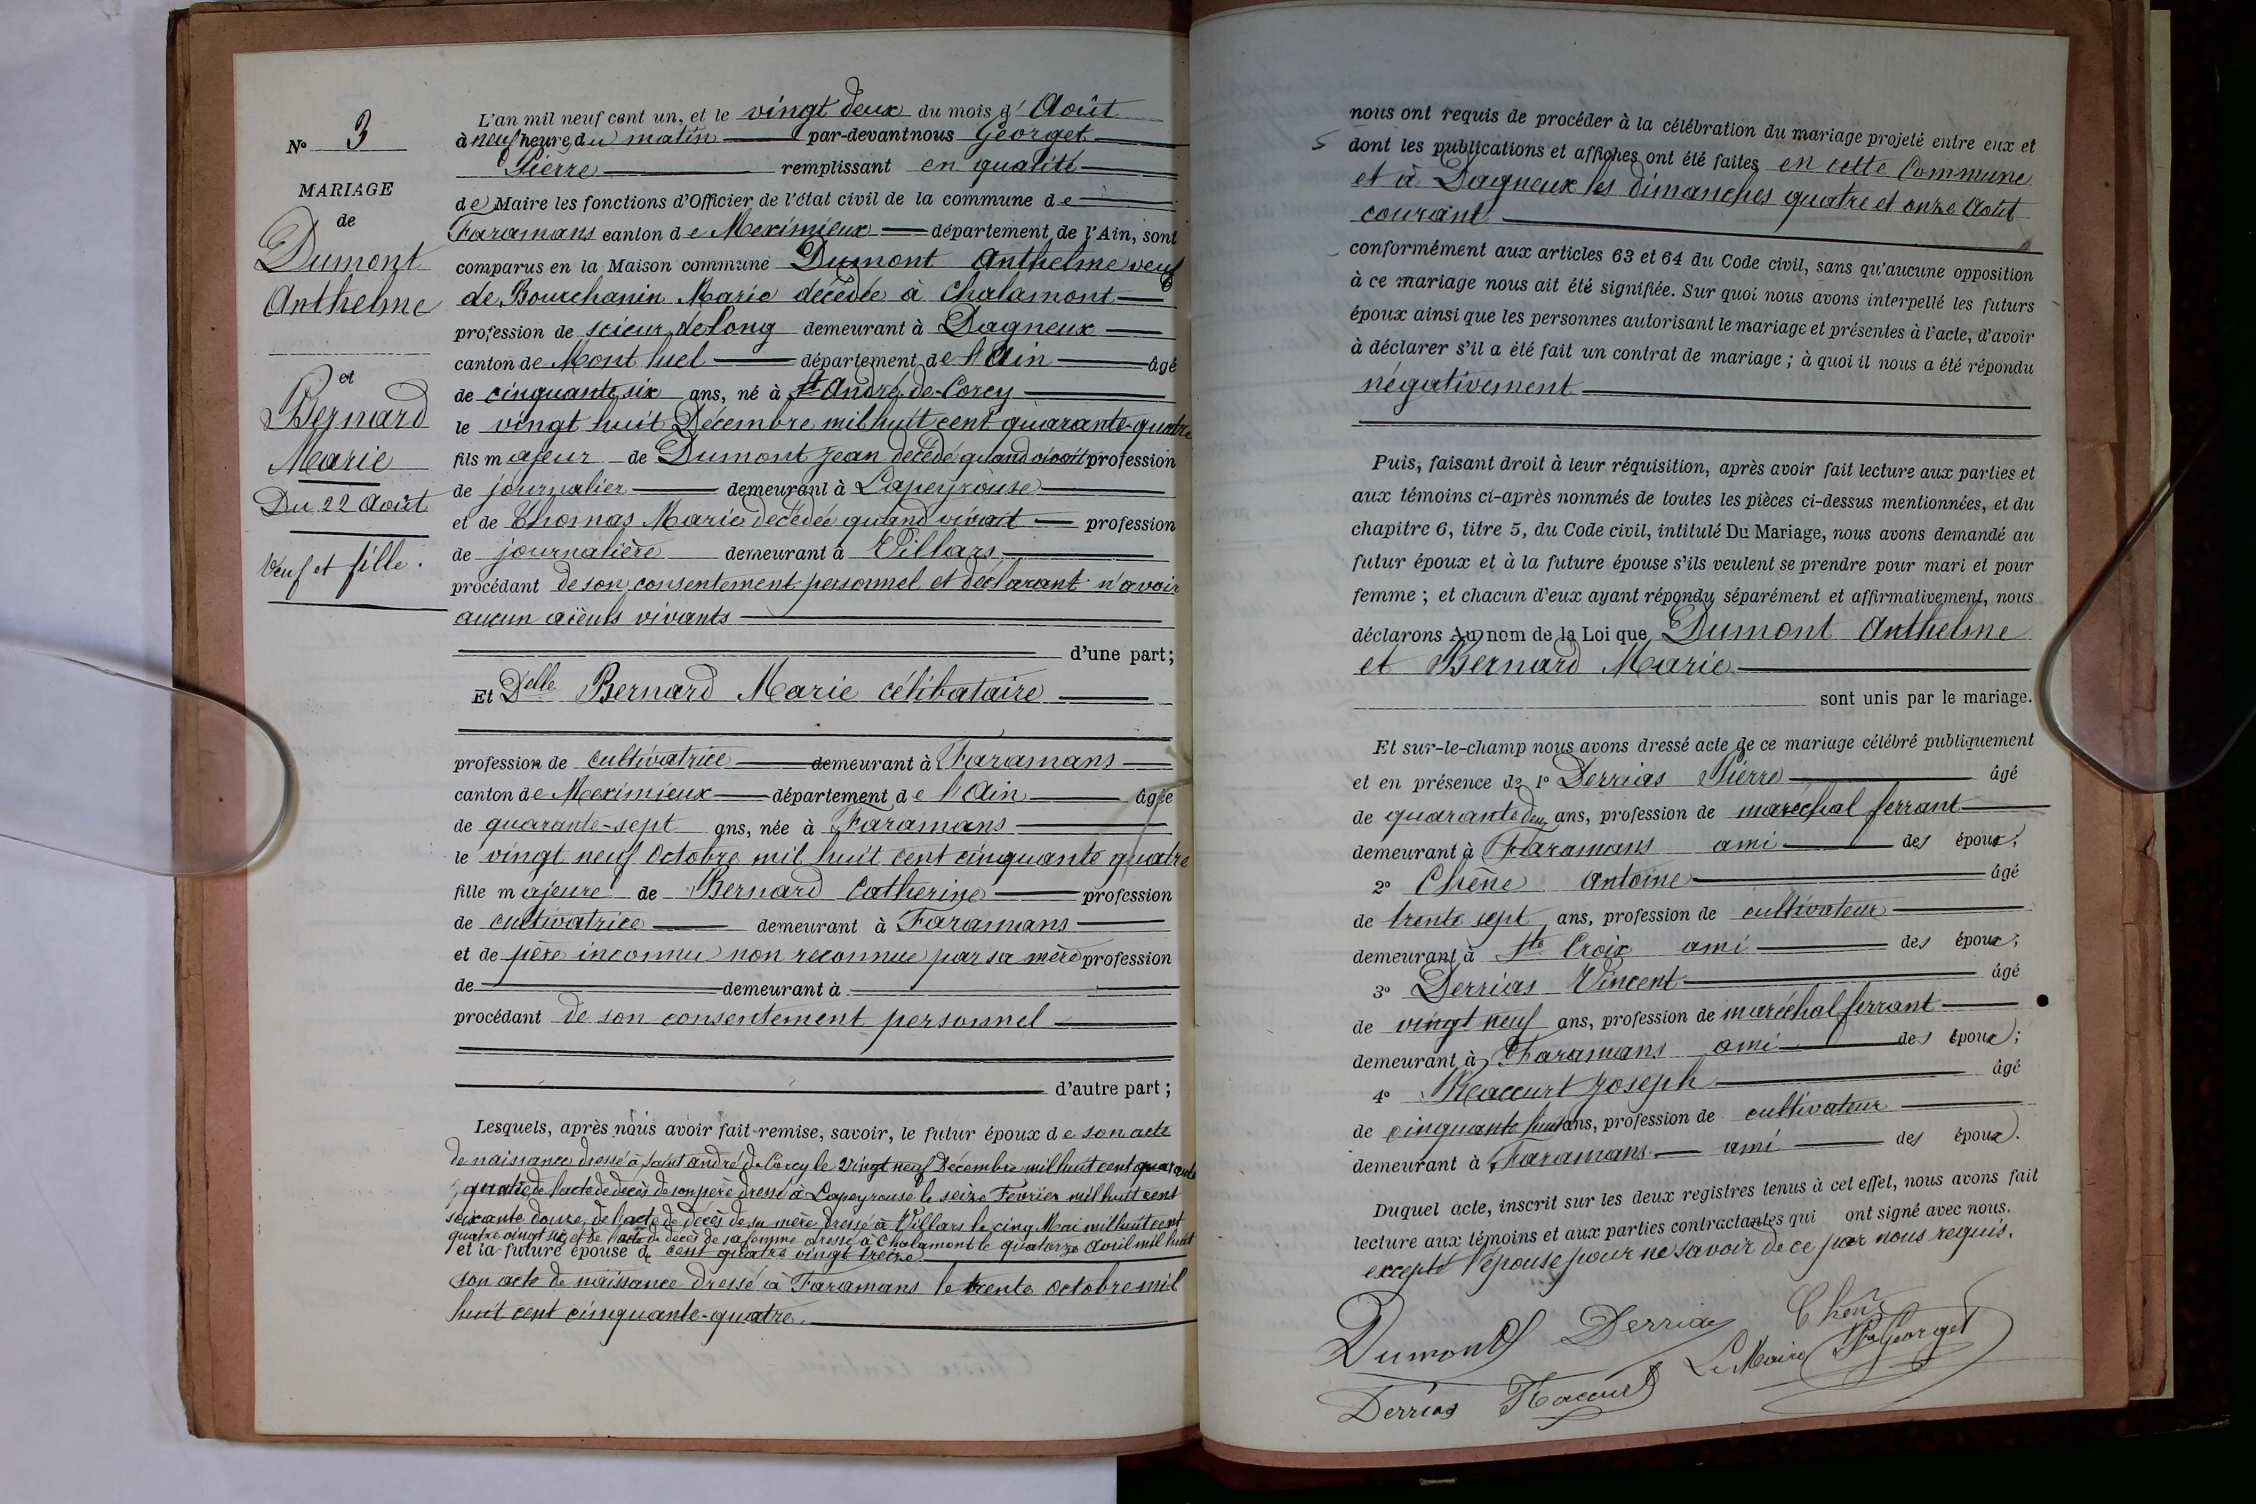 N° 3
MARIAGE
de
Dumont
Anthelme
et
Bernard
Marie
Du 22 Août
Veuf et fille.
L'an mil neuf cent un, et le vingt deux du mois d' Août
à neuf heure du matin par-devant nous Georget
Pierre remplissant en qualité
de Maire les fonctions d'Officier de l'état civil de la commune de
Faramans canton de Meximieux département de l'Ain, sont
comparus en la Maison commune Dumont Anthelme veuf
de Bourchanin Marie décédée à Chalamont
profession de scieur de long demeurant à Dagneux
canton de Montluel département de l'Ain âgé
de cinquante six ans, né à St André-de-Corcy
le vingt huit Décembre mil huit cent quarante-quatre
fils majeur de Dumont Jean décédé quand vivait profession
de journalier demeurant à Lapeyrouse
et de Thomas Marie décédée quand vivait profession
de journalière demeurant à Villars
procédant de son consentement personnel et déclarant n'avoir
aucun aïeuls vivants
d'une part;
Et Delle Bernard Marie célibataire
profession de cultivatrice demeurant à Faramans
canton de Meximieux département de l'Ain âgée
de quarante-sept ans, née à Faramans
le vingt neuf Octobre mil huit cent cinquante quatre
fille majeure de Bernard Catherine profession
de cultivatrice demeurant à Faramans
et de père inconnu non reconnue par sa mère profession
de demeurant à
procédant de son consentement personnel
d'autre part;
Lesquels, après nous avoir fait remise, savoir, le futur époux de son acte
de naissance dressé à Saint André de Corcy le vingt neuf Décembre mil huit cent quarante
quatre, de l'acte de décès de son père dressé à Lapeyrouse le seize Février mil huit cent
soixante douze, de l'acte de décès de sa mère dressé à Villars le cinq Mai mil huit cent
quatre vingt six, et de l'acte de décès de sa femme dressé à Chalamont le quatorze Avril mil huit
et la future épouse de cent quatre vingt treize
son acte de naissance dressé à Faramans le trente Octobre mil
huit cent cinquante-quatre.
nous ont requis de procéder à la célébration du mariage projeté entre eux et
dont les publications et affiches ont été faites en cette Commune
et à Dagneux les dimanches quatre et onze Août
courant
conformément aux articles 63 et 64 du Code civil, sans qu'aucune opposition
à ce mariage nous ait été signifiée. Sur quoi nous avons interpellé les futurs
époux ainsi que les personnes autorisant le mariage et présentes à l'acte, d'avoir
à déclarer s'il a été fait un contrat de mariage; à quoi il nous a été répondu
négativement
Puis, faisant droit à leur réquisition, après avoir fait lecture aux parties et
aux témoins ci-après nommés de toutes les pièces ci-dessus mentionnées, et du
chapitre 6, titre 5, du Code civil, intitulé Du Mariage, nous avons demandé au
futur époux et à la future épouse s'ils veulent se prendre pour mari et pour
femme; et chacun d'eux ayant répondu séparément et affirmativement, nous
déclarons Au nom de la Loi que Dumont Anthelme
et Bernard Marie
sont unis par le mariage.
Et sur-le-champ nous avons dressé acte de ce mariage célébré publiquement
et en présence de 1° Derrias Pierre âgé
de quarante deux ans, profession de maréchal ferrant
demeurant à Faramans ami des époux;
2° Chêne Antoine âgé
de trente sept ans, profession de cultivateur
demeurant à Ste Croix ami des époux;
3° Derrias Vincent âgé
de vingt neuf ans, profession de maréchal ferrant
demeurant à Faramans ami des époux;
4° Raccurt Joseph âgé
de cinquante huit ans, profession de cultivateur
demeurant à Faramans ami des époux.
Duquel acte, inscrit sur les deux registres tenus à cet effet, nous avons fait
lecture aux témoins et aux parties contractantes qui ont signé avec nous.
excepté l'épouse pour ne savoir de ce par nous requis.
Dumont Derrias Chêne
Le Maire Georget
Derrias Raccurt